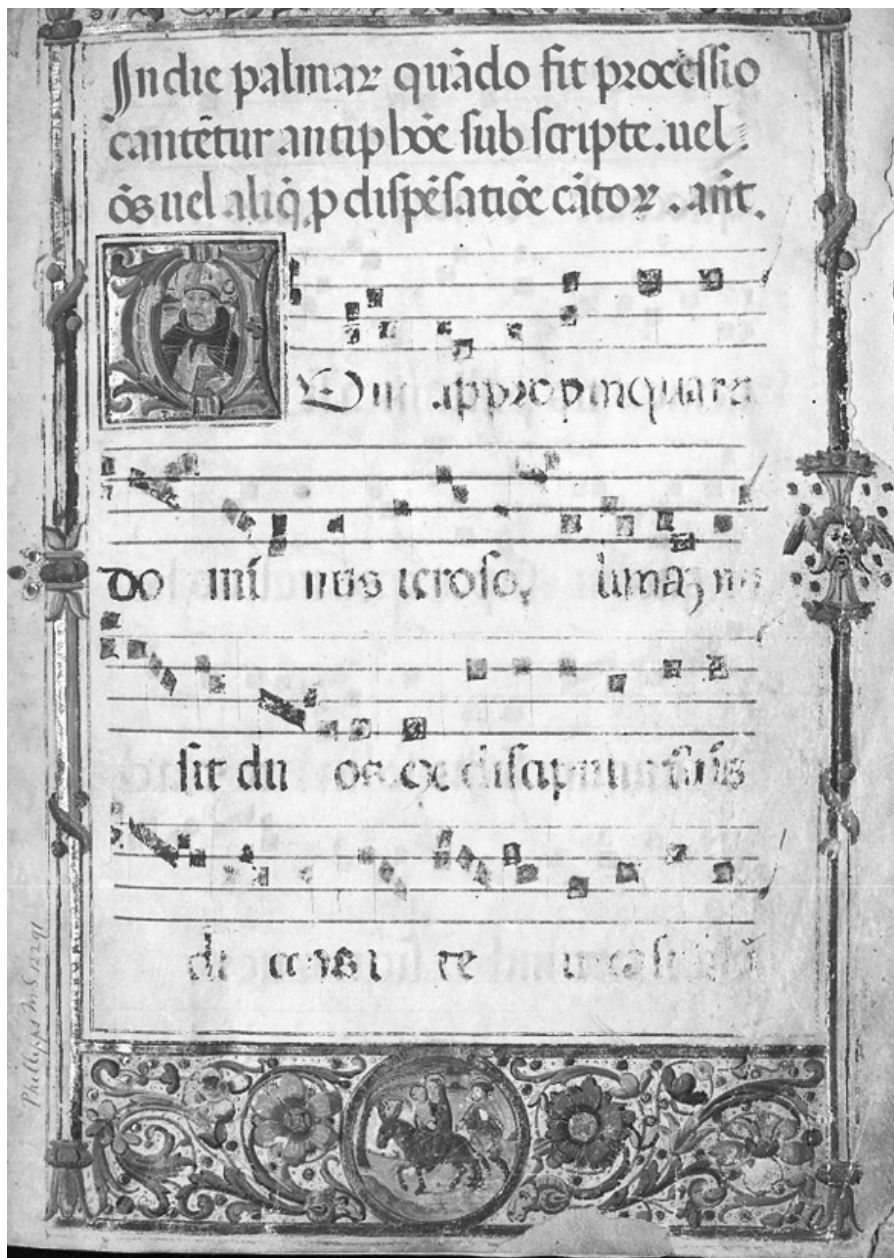 In die palmaꝝ quādo fit processio
cantētur antiphōe sub scripte. uel
ōs uel aliq̄ p dispēsatiōe cātoꝝ. añt.
Cum appropinquare
do mi nus ieroso limaꝫ mi
sit du os ex discipulis suis
di cens i te in castel
Phillipps MS 12291